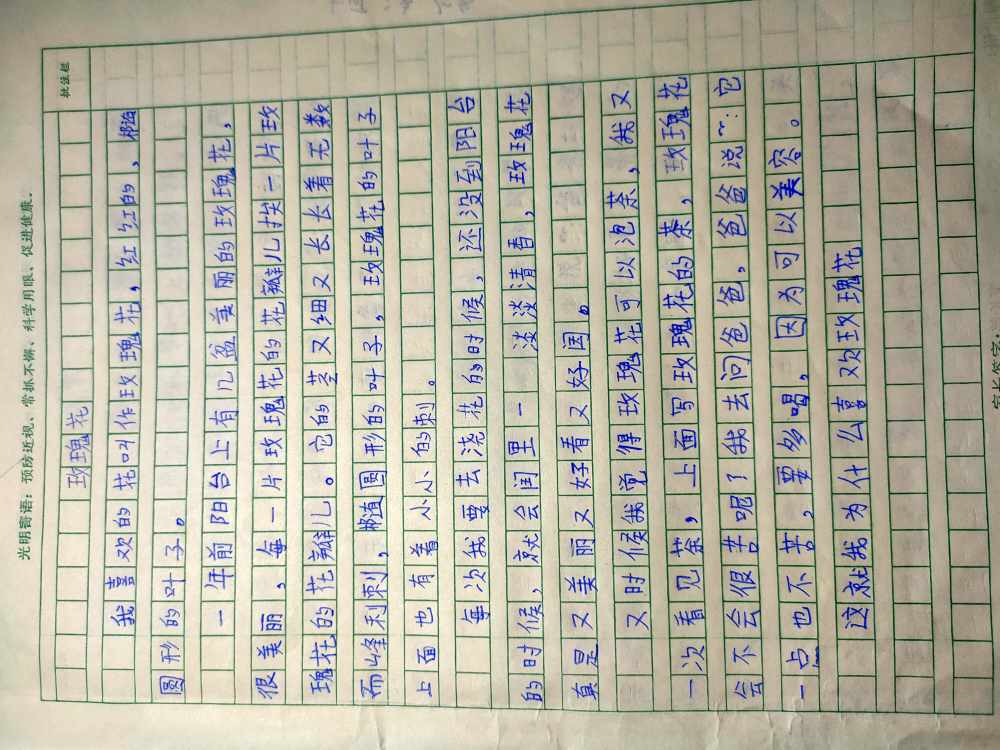 光明寄语：预防近视、常抓不懈、科学用眼、促进健康。
批注栏
玫瑰花
我喜欢的花叫作玫瑰花，红红的，椭
圆形的叶子。
一年前阳台上有几盆美丽的玫瑰花，
很美丽，每一片玫瑰花的花瓣儿挨一片玫
瑰花的花瓣儿。它的茎又细又长长着无数
而峰利刺，椭圆形的叶子，玫瑰花的叶子
上面也有着小小的刺。
每次我要去浇花的时候，还没到阳台
的时候，就会闻里一淡淡清香，玫瑰花
真是又美丽又好看又好闻。
又时候我觉得玫瑰花可以泡茶，我又
一次看见茶，上面写玫瑰花的茶，玫瑰花
会不会很苦呢？我去问爸爸，爸爸说：它
一点也不苦，要多喝，因为可以美容。
这就我为什么喜欢玫瑰花
家长签字：